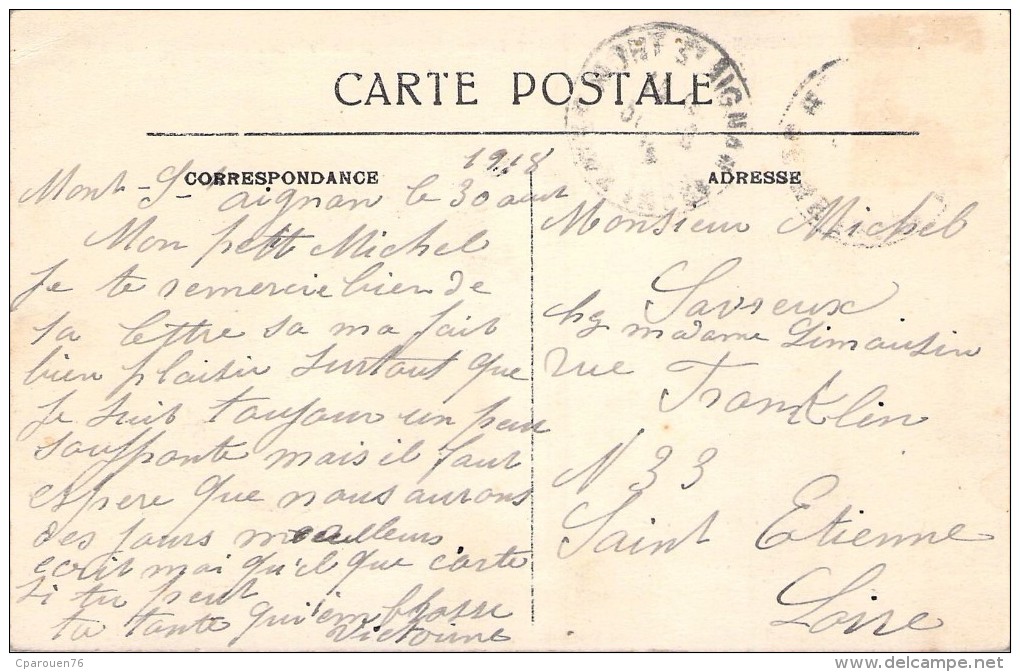 CARTE POSTALE
CORRESPONDANCE
ADRESSE
1918
Mont-St-aignan le 30 aout
Mon petit Michel
Je te remercie bien de
ta lettre sa ma fait
bien plaisir surtout que
je suit toujour un peu
souffrante mais il faut
espere que nous aurons
des jours meuilleurs
ecrit moi quelque carte
si tu peut
ta tante qui embrasse
Victorine
Monsieur Michel
Savreux
chez madame Limousin
rue Franklin
N 33
Saint Etienne
Loire
MONT ST AIGNAN
Cparouen76
www.delcampe.net